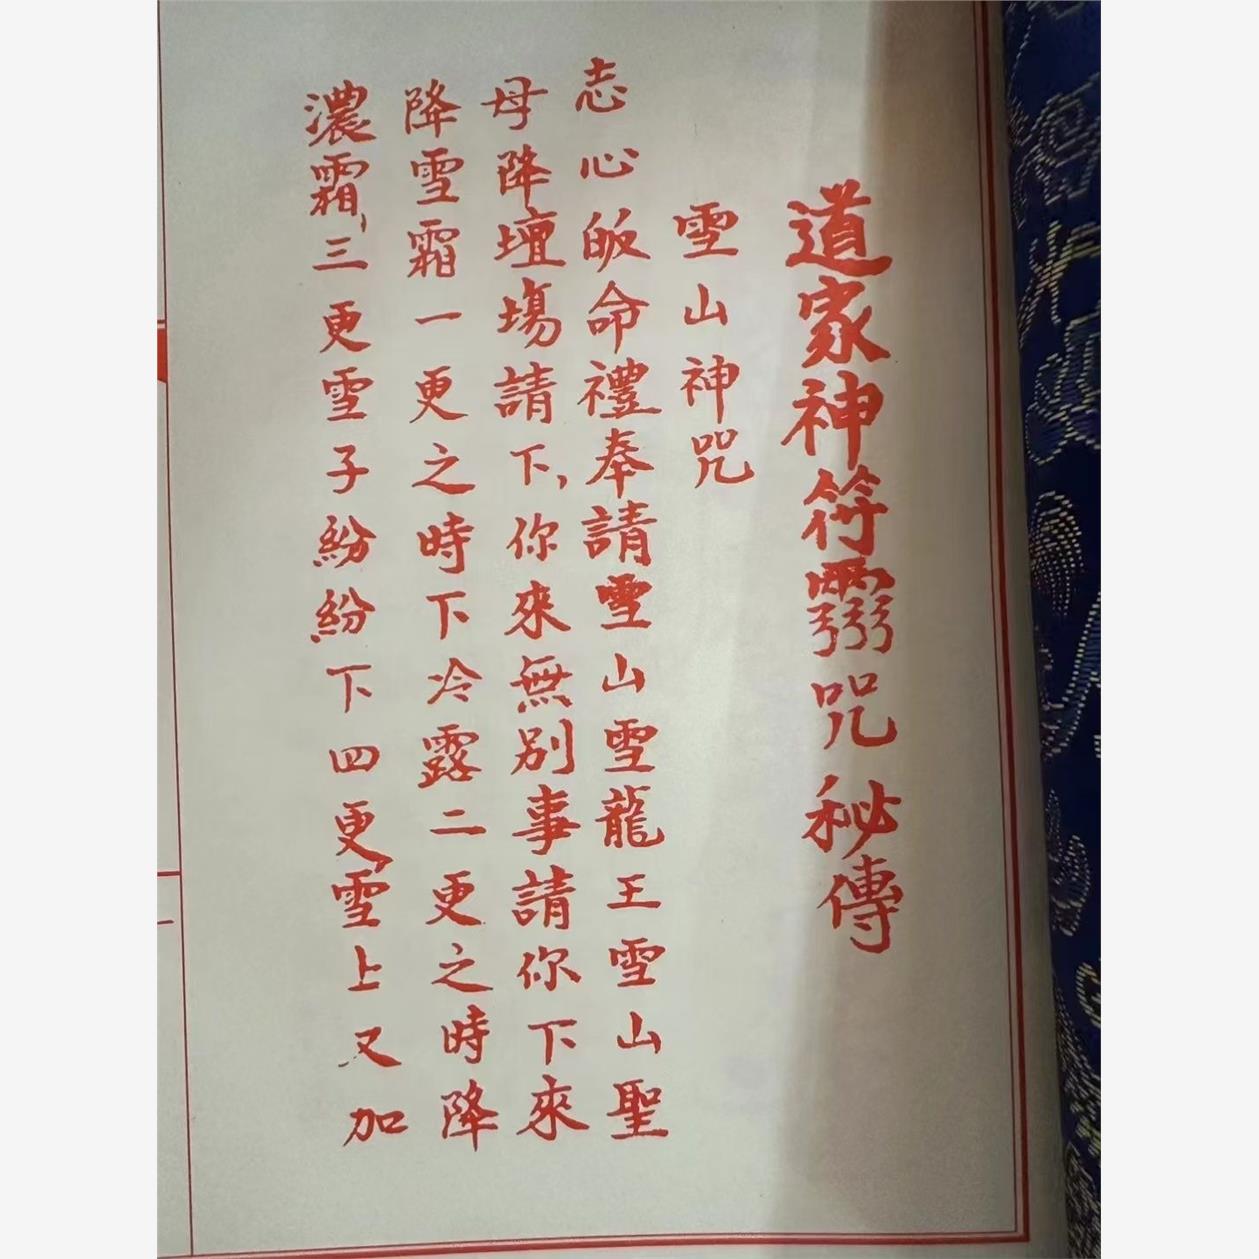 道家神符靈咒秘傳
雪山神咒
志心皈命禮奉請雪山雪龍王雪山聖
母降壇塲請下,你來無別事請你下來
降雪霜一更之時下冷露二更之時降
濃霜,三更雪子紛紛下四更,雪上又加